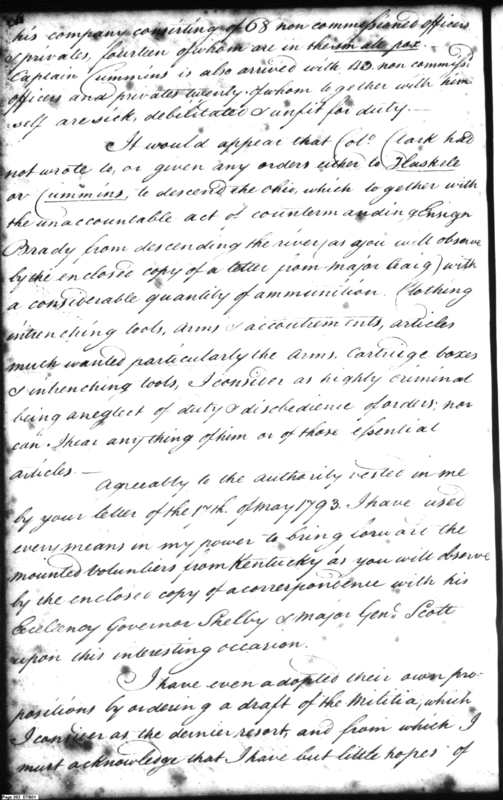 his company consisting of 68 non commissioned officers
& privates, fourteen of whom are in the small pox.
Captain Cummins is also arrived with 43. non commiss.
officers and privates twenty of whom together with him
self are sick, debilitated & unfit for duty.—
It would appear that Colo. Clark had
not wrote to, or given any orders either to Haskele
or Cummins, to descend the Ohio, which together with
the unaccountable act of countermanding Ensign
Brady from descending the river (as you will observe
by the enclosed copy of a letter from Major Craig) with
a considerable quantity of ammunition. Clothing
intrenching tools, arms & accoutrements, articles
much wanted particularly the arms. Cartridge boxes
& intrenching tools, I consider as highly criminal
being a neglect of duty & disobedience of orders; nor
can I hear any thing of him or of those essential
articles.—
Agreeably to the authority vested in me
by your letter of the 17th. of May 1793. I have used
every means in my power to bring forward the
mounted Volunteers from Kentucky as you will observe
by the enclosed copy of a correspondence with his
Excellency Governor Shelby & Major Genl. Scott
upon this interesting occasion.
I have even adopted their own pro-
positions by ordering a draft of the Militia, which
I consider as the dernier resort, and from which I
must acknowledge that I have but little hopes of